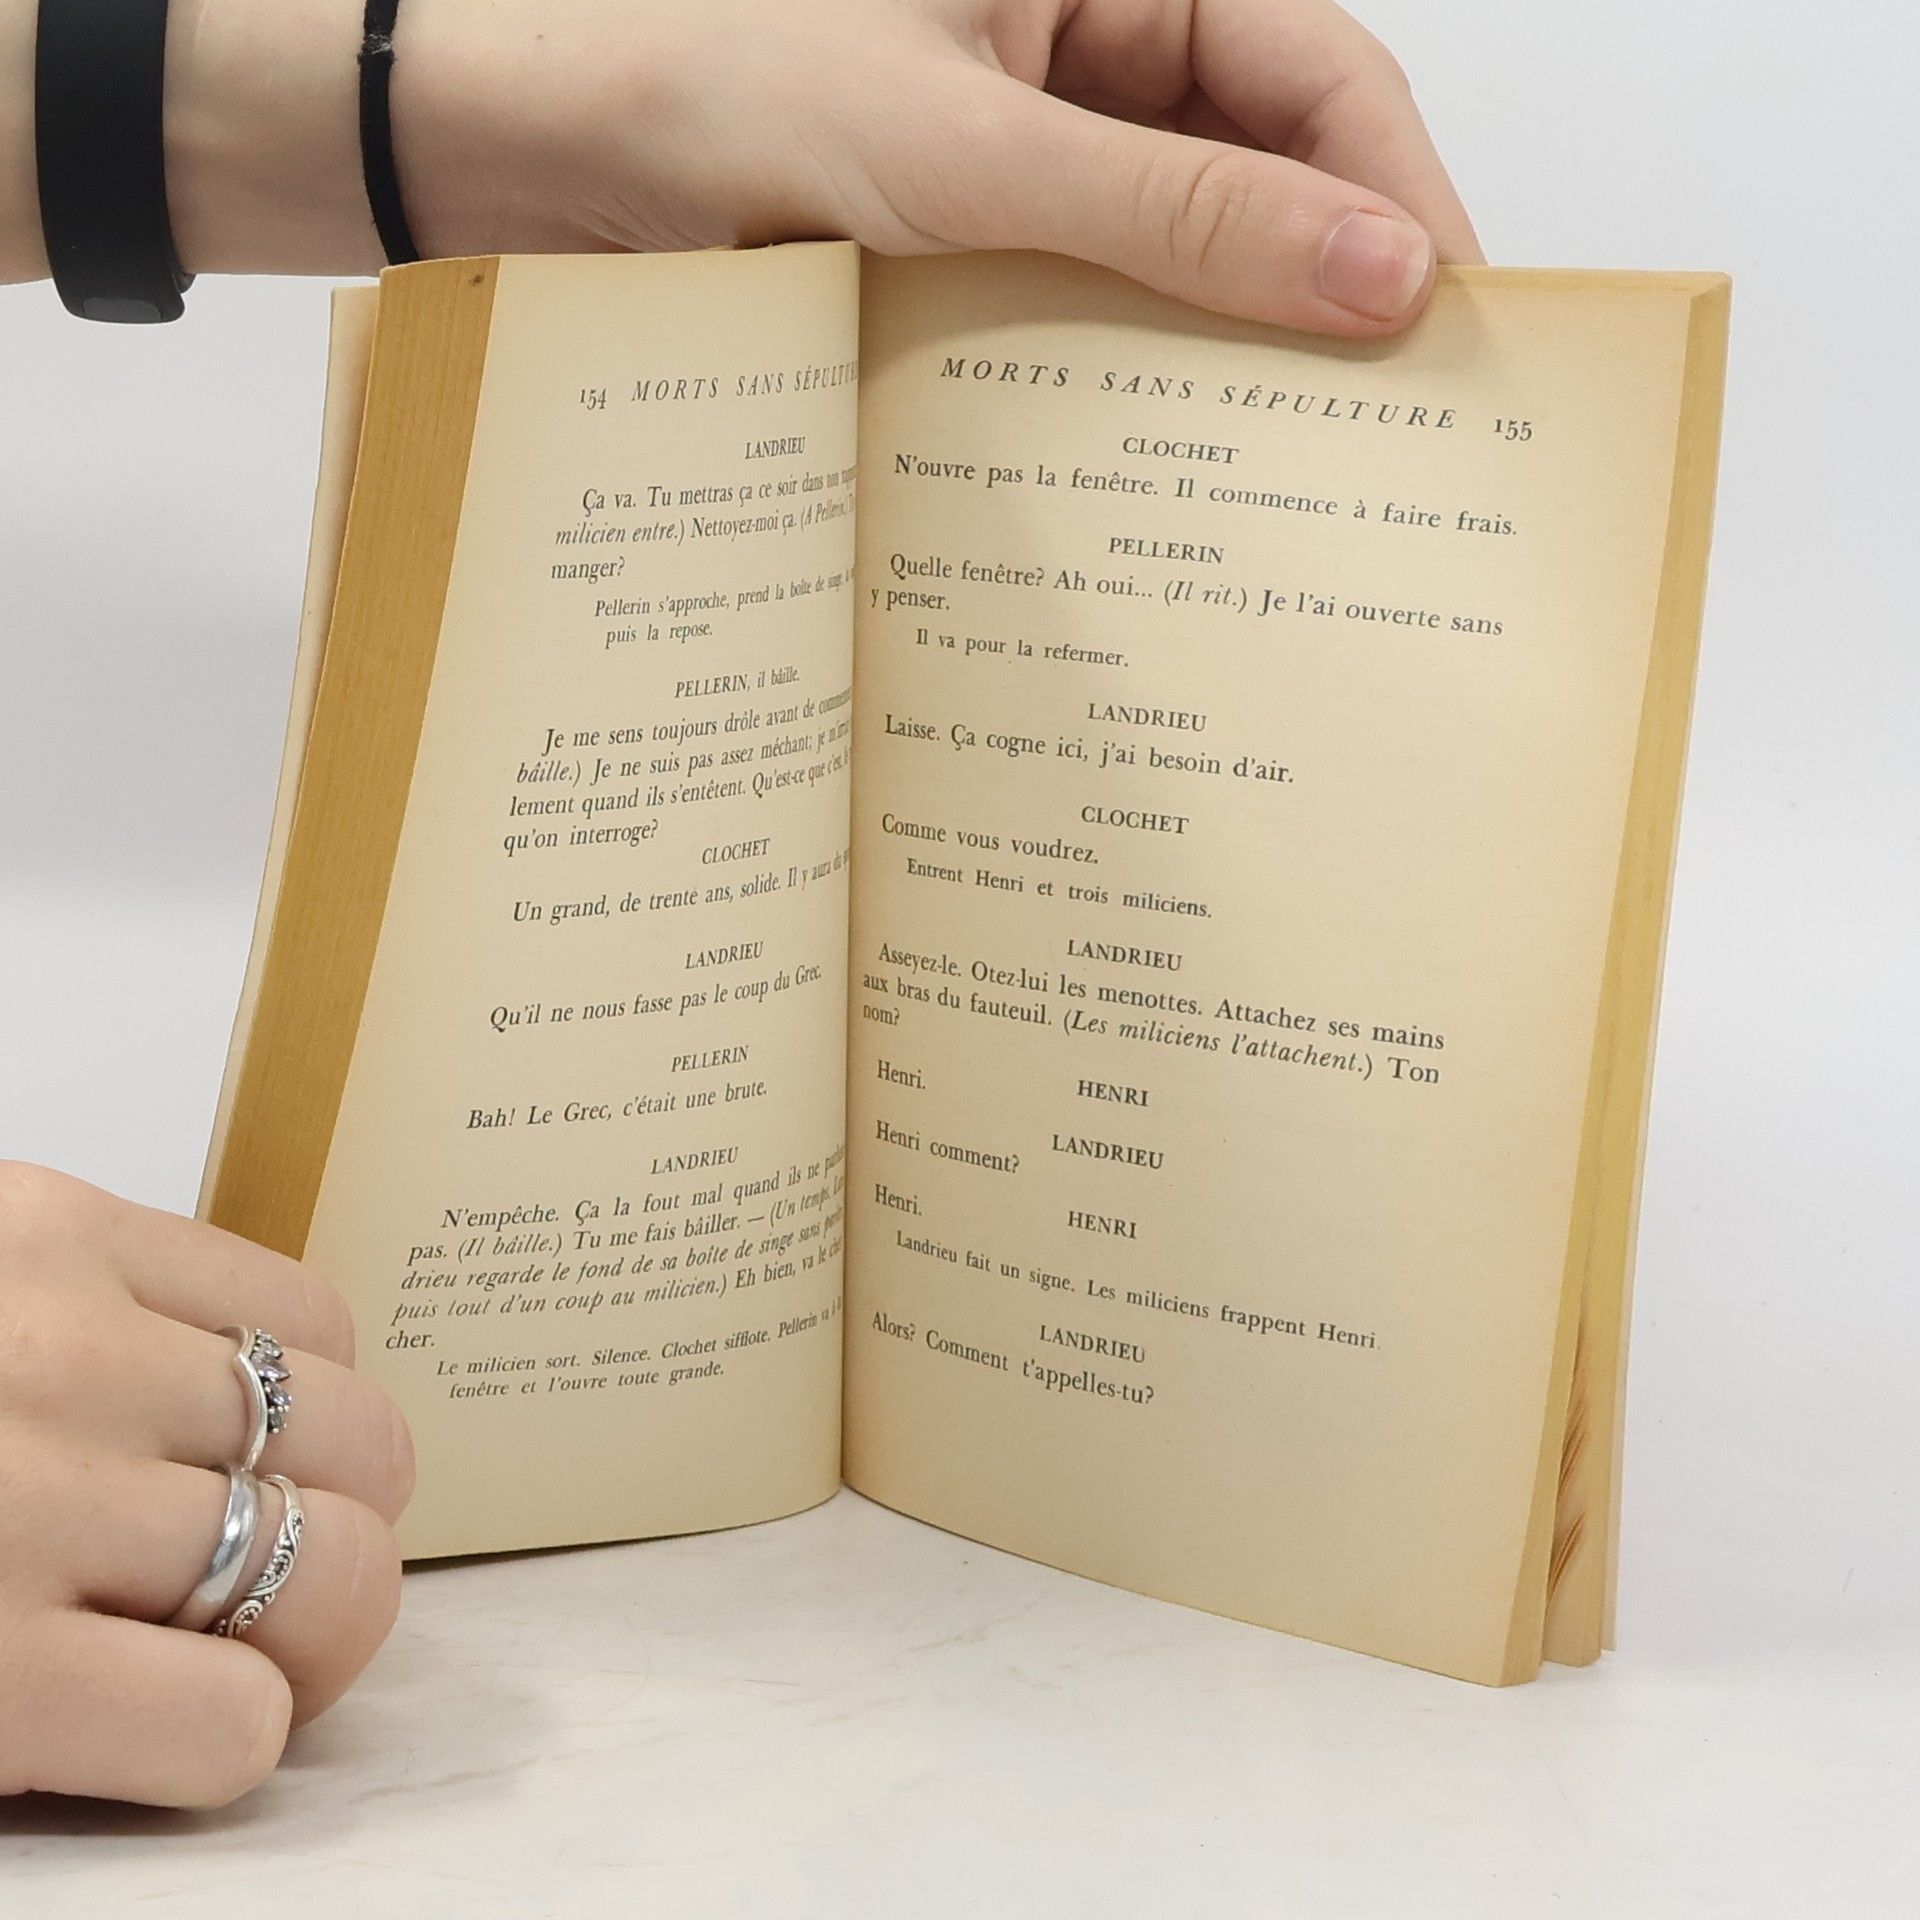 154 MORTS SANS SÉPULTURE
LANDRIEU
Ça va. Tu mettras ça ce soir dans ton
milicien entre.) Nettoyez-moi ça. (A Pellerin.)
manger?
Pellerin s'approche, prend la boîte de singe,
puis la repose.
PELLERIN, il bâille.
Je me sens toujours drôle avant de
bâille.) Je ne suis pas assez méchant; je
lement quand ils s'entêtent. Qu'est-ce que c'est,
qu'on interroge?
CLOCHET
Un grand, de trente ans, solide. Il y aura du
LANDRIEU
Qu'il ne nous fasse pas le coup du Grec.
PELLERIN
Bah! Le Grec, c'était une brute.
LANDRIEU
N'empêche. Ça la fout mal quand ils ne
pas. (Il bâille.) Tu me fais bâiller. — (Un temps.
drieu regarde le fond de sa boîte de singe sans
puis tout d'un coup au milicien.) Eh bien, va le
cher.
Le milicien sort. Silence. Clochet sifflote. Pellerin va à
fenêtre et l'ouvre toute grande.
MORTS SANS SÉPULTURE 155
CLOCHET
N'ouvre pas la fenêtre. Il commence à faire frais.
PELLERIN
Quelle fenêtre? Ah oui... (Il rit.) Je l'ai ouverte sans
y penser.
Il va pour la refermer.
LANDRIEU
Laisse. Ça cogne ici, j'ai besoin d'air.
CLOCHET
Comme vous voudrez.
Entrent Henri et trois miliciens.
LANDRIEU
Asseyez-le. Otez-lui les menottes. Attachez ses mains
aux bras du fauteuil. (Les miliciens l'attachent.) Ton
nom?
HENRI
Henri.
LANDRIEU
Henri comment?
HENRI
Henri.
Landrieu fait un signe. Les miliciens frappent Henri.
LANDRIEU
Alors? Comment t'appelles-tu?